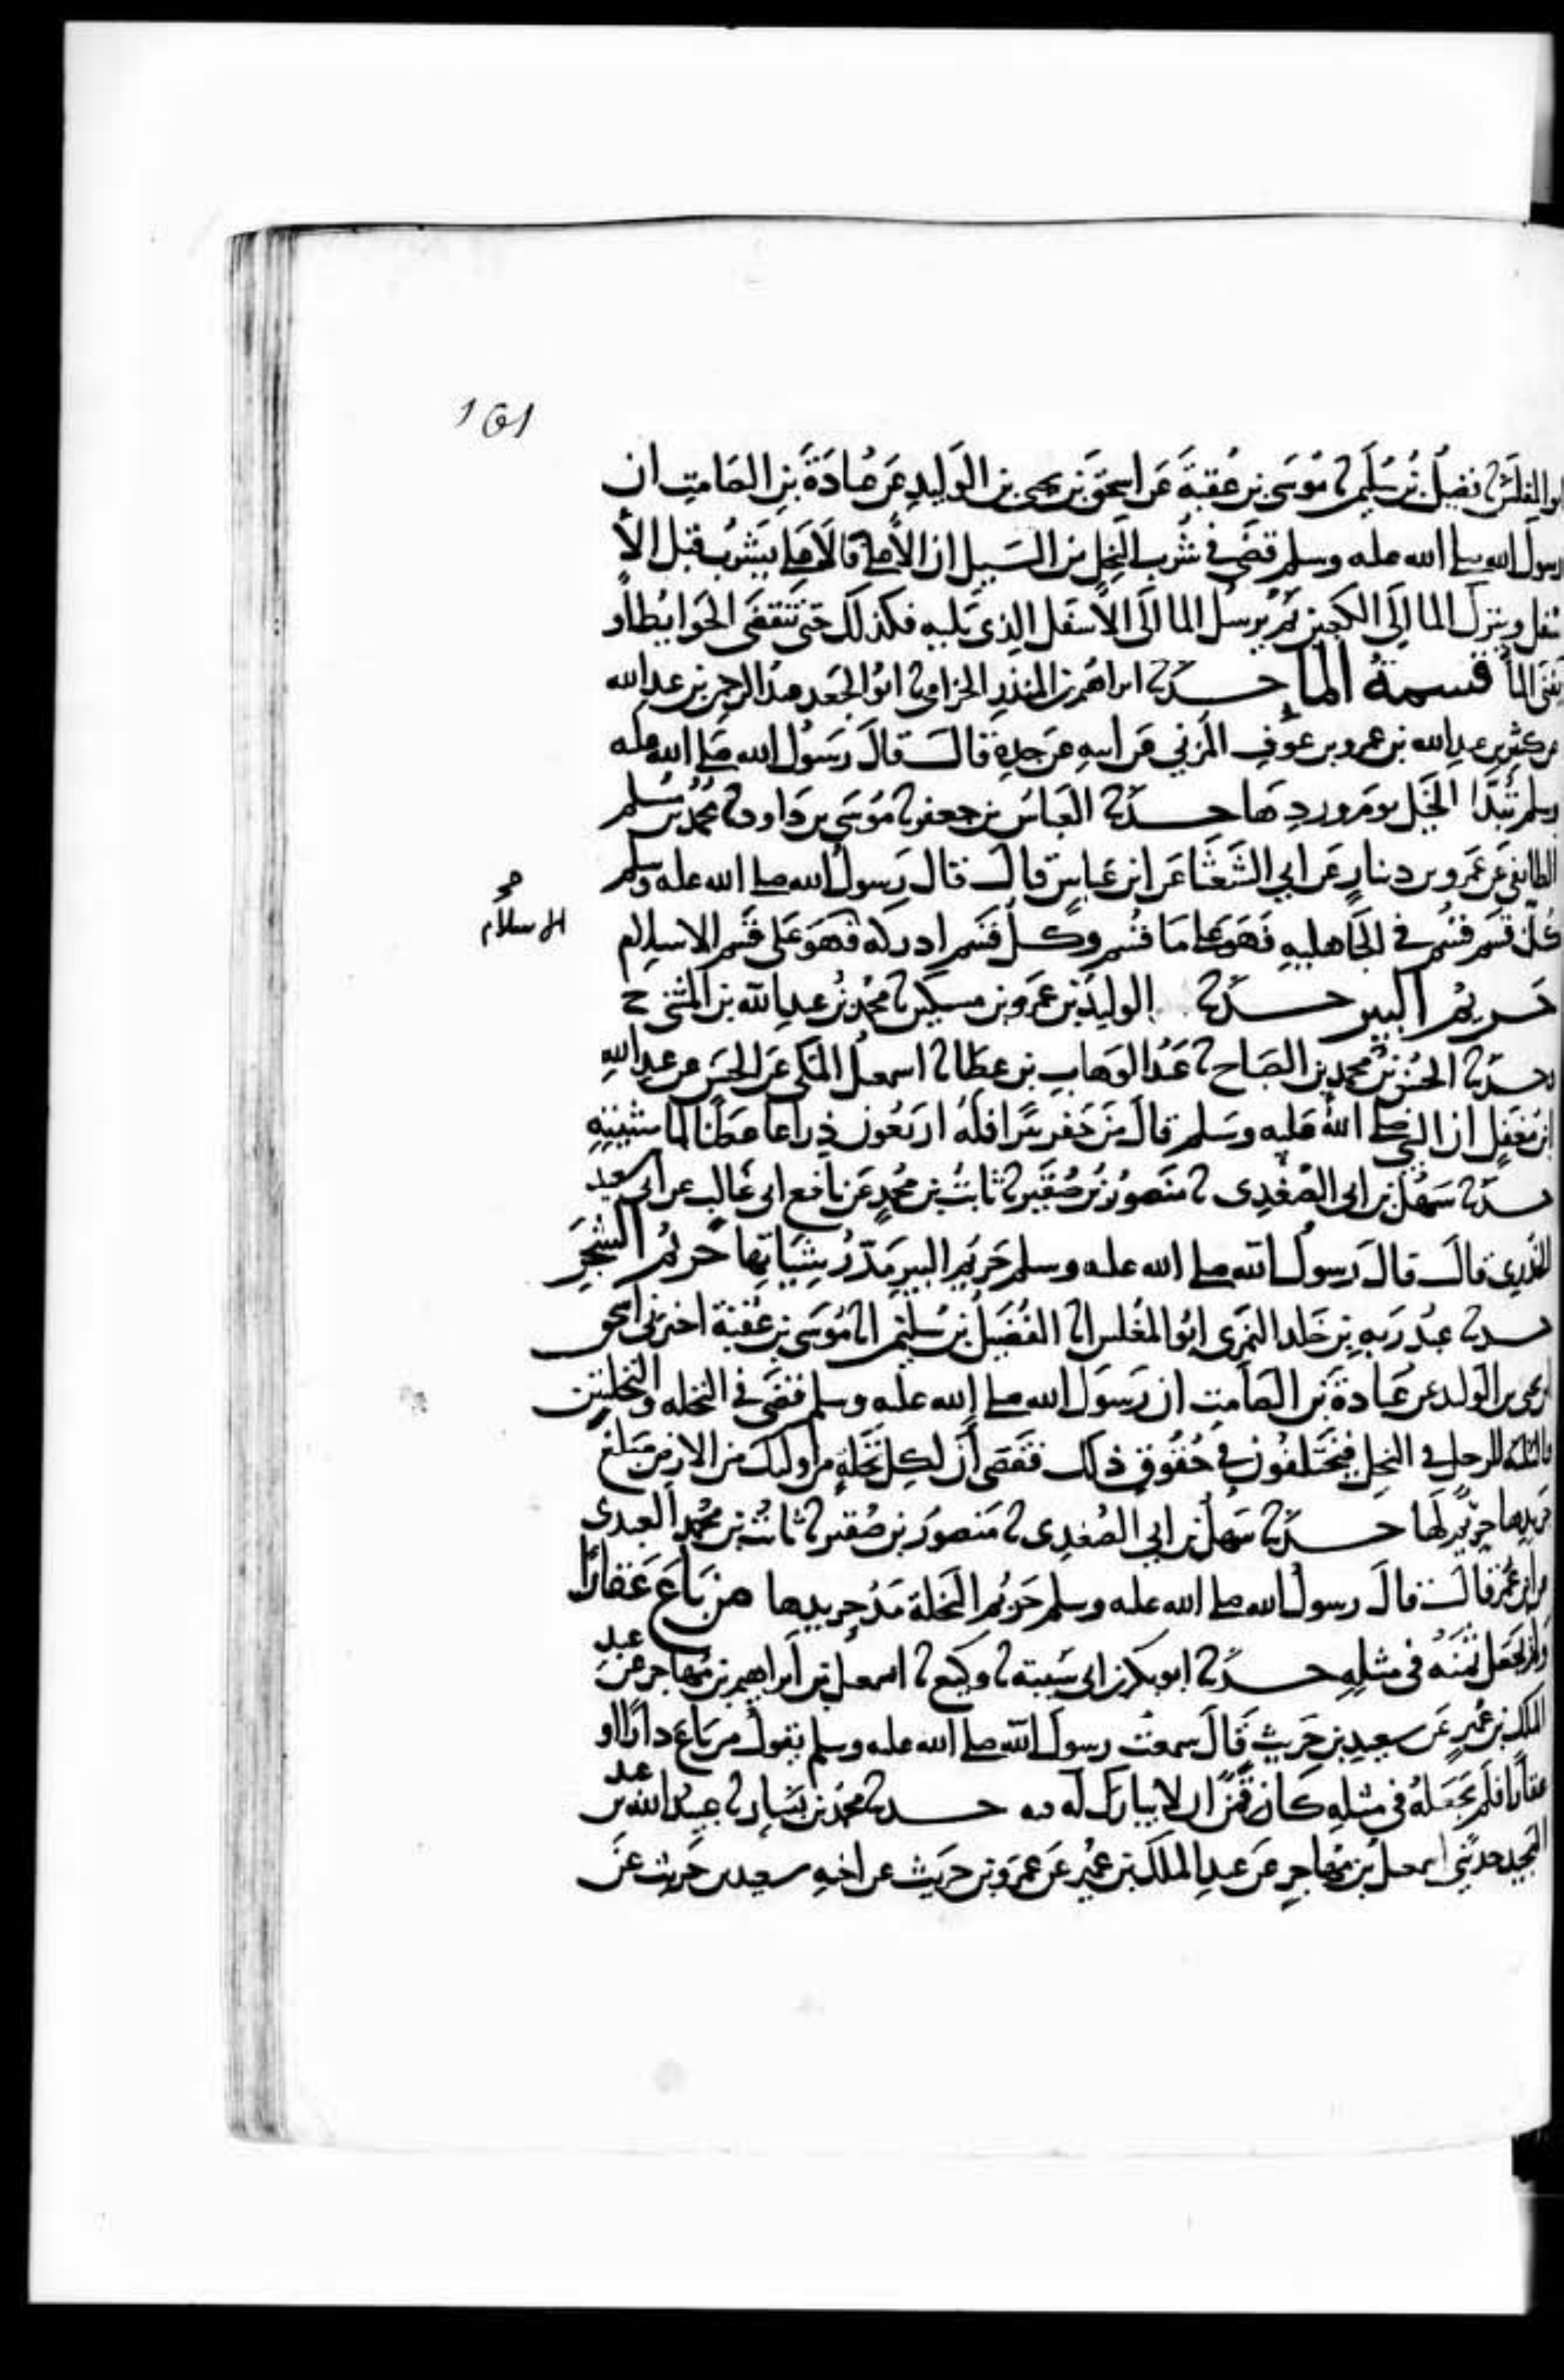 151
ابو المغلس ثنا فضيل بن سليم ثنا موسى بن عقبة عن اسحق بن يحيى بن الوليد عن عبادة بن الصامت ان
رسول الله صلى الله عليه وسلم قضى في شرب النخل من السيل ان الاعلى فالاعلى يشرب قبل الأ
سفل وينزل الما الى الكعبين ثم يرسل الما الى الاسفل الذي يليه فكذلك حتى تنقضي الحوايط او
يفنى الما قسمة الما حدثنا ابراهيم بن المنذر الحزامي ثنا ابو الجعد عبد الرحمن بن عبد الله
عن كثير بن عبد الله بن عمرو بن عوف المزني عن ابيه عن جده قال قال رسول الله صلى الله عليه
وسلم تبدا الخيل يوم وردها حدثنا العباس بن جعفر ثنا موسى بن داود ثنا محمد بن مسلم
الطايفي عن عمرو بن دينار عن ابي الشعثا عن ابن عباس قال قال رسول الله صلى الله عليه وسلم
كل قسم قسم في الجاهلية فهو على ما قسم وكل قسم ادركه فهو على قسم الاسلام
الاسلام
حريم البير حدثنا الوليد بن عمرو بن مسكين ثنا محمد بن عبد الله بن المثنى ح
وحدثنا الحسن بن محمد بن الصباح ثنا عبد الوهاب بن عطا ثنا اسمعيل المكي عن الحسن عن عبد الله
ابن مغفل ان النبي صلى الله عليه وسلم قال من حفر بئرا فله اربعون ذراعا عطنا لماشيته
حدثنا سهل بن ابي الصغدي ثنا منصور بن صقير ثنا ثابت بن محمد عن نافع ابي غالب عن ابي سعيد
الخدري قال قال رسول الله صلى الله عليه وسلم حريم البير مد رشايها حريم الشجر
حدثنا عبد ربه بن خلد النمري ابو المغلس انا الفضيل بن سليم انا موسى بن عقبة اخبرني اسحق
ابن يحيى بن الوليد عن عبادة بن الصامت ان رسول الله صلى الله عليه وسلم قضى في النخله والنخلتين
والثلثه للرجل في النخل فيختلفون في حقوق ذلك فقضى أن لكل نخلة من أوليك من الارض مبلغ
جريدها حريم لها حدثنا سهل بن ابي الصغدي ثنا منصور بن صقير ثنا ثابت بن محمد العبدي
عن ابن عمر قال قال رسول الله صلى الله عليه وسلم حريم النخلة مد جريدها من باع عقارا
ولم يجعل ثمنه في مثله حدثنا ابو بكر بن ابي شيبة ثنا وكيع ثنا اسمعيل بن ابراهيم بن مهاجر عن عبد
الملك بن عمير عن سعيد بن حريث قال سمعت رسول الله صلى الله عليه وسلم يقول من باع دارا او
عقارا فلم يجعله في مثله كان قمنا ان لا يبارك له فيه حدثنا محمد بن بشار ثنا عبيد الله بن عبد
المجيد حدثني اسمعيل بن مهاجر عن عبد الملك بن عمير عن عمرو بن حريث عن اخيه سعيد بن حريث عن